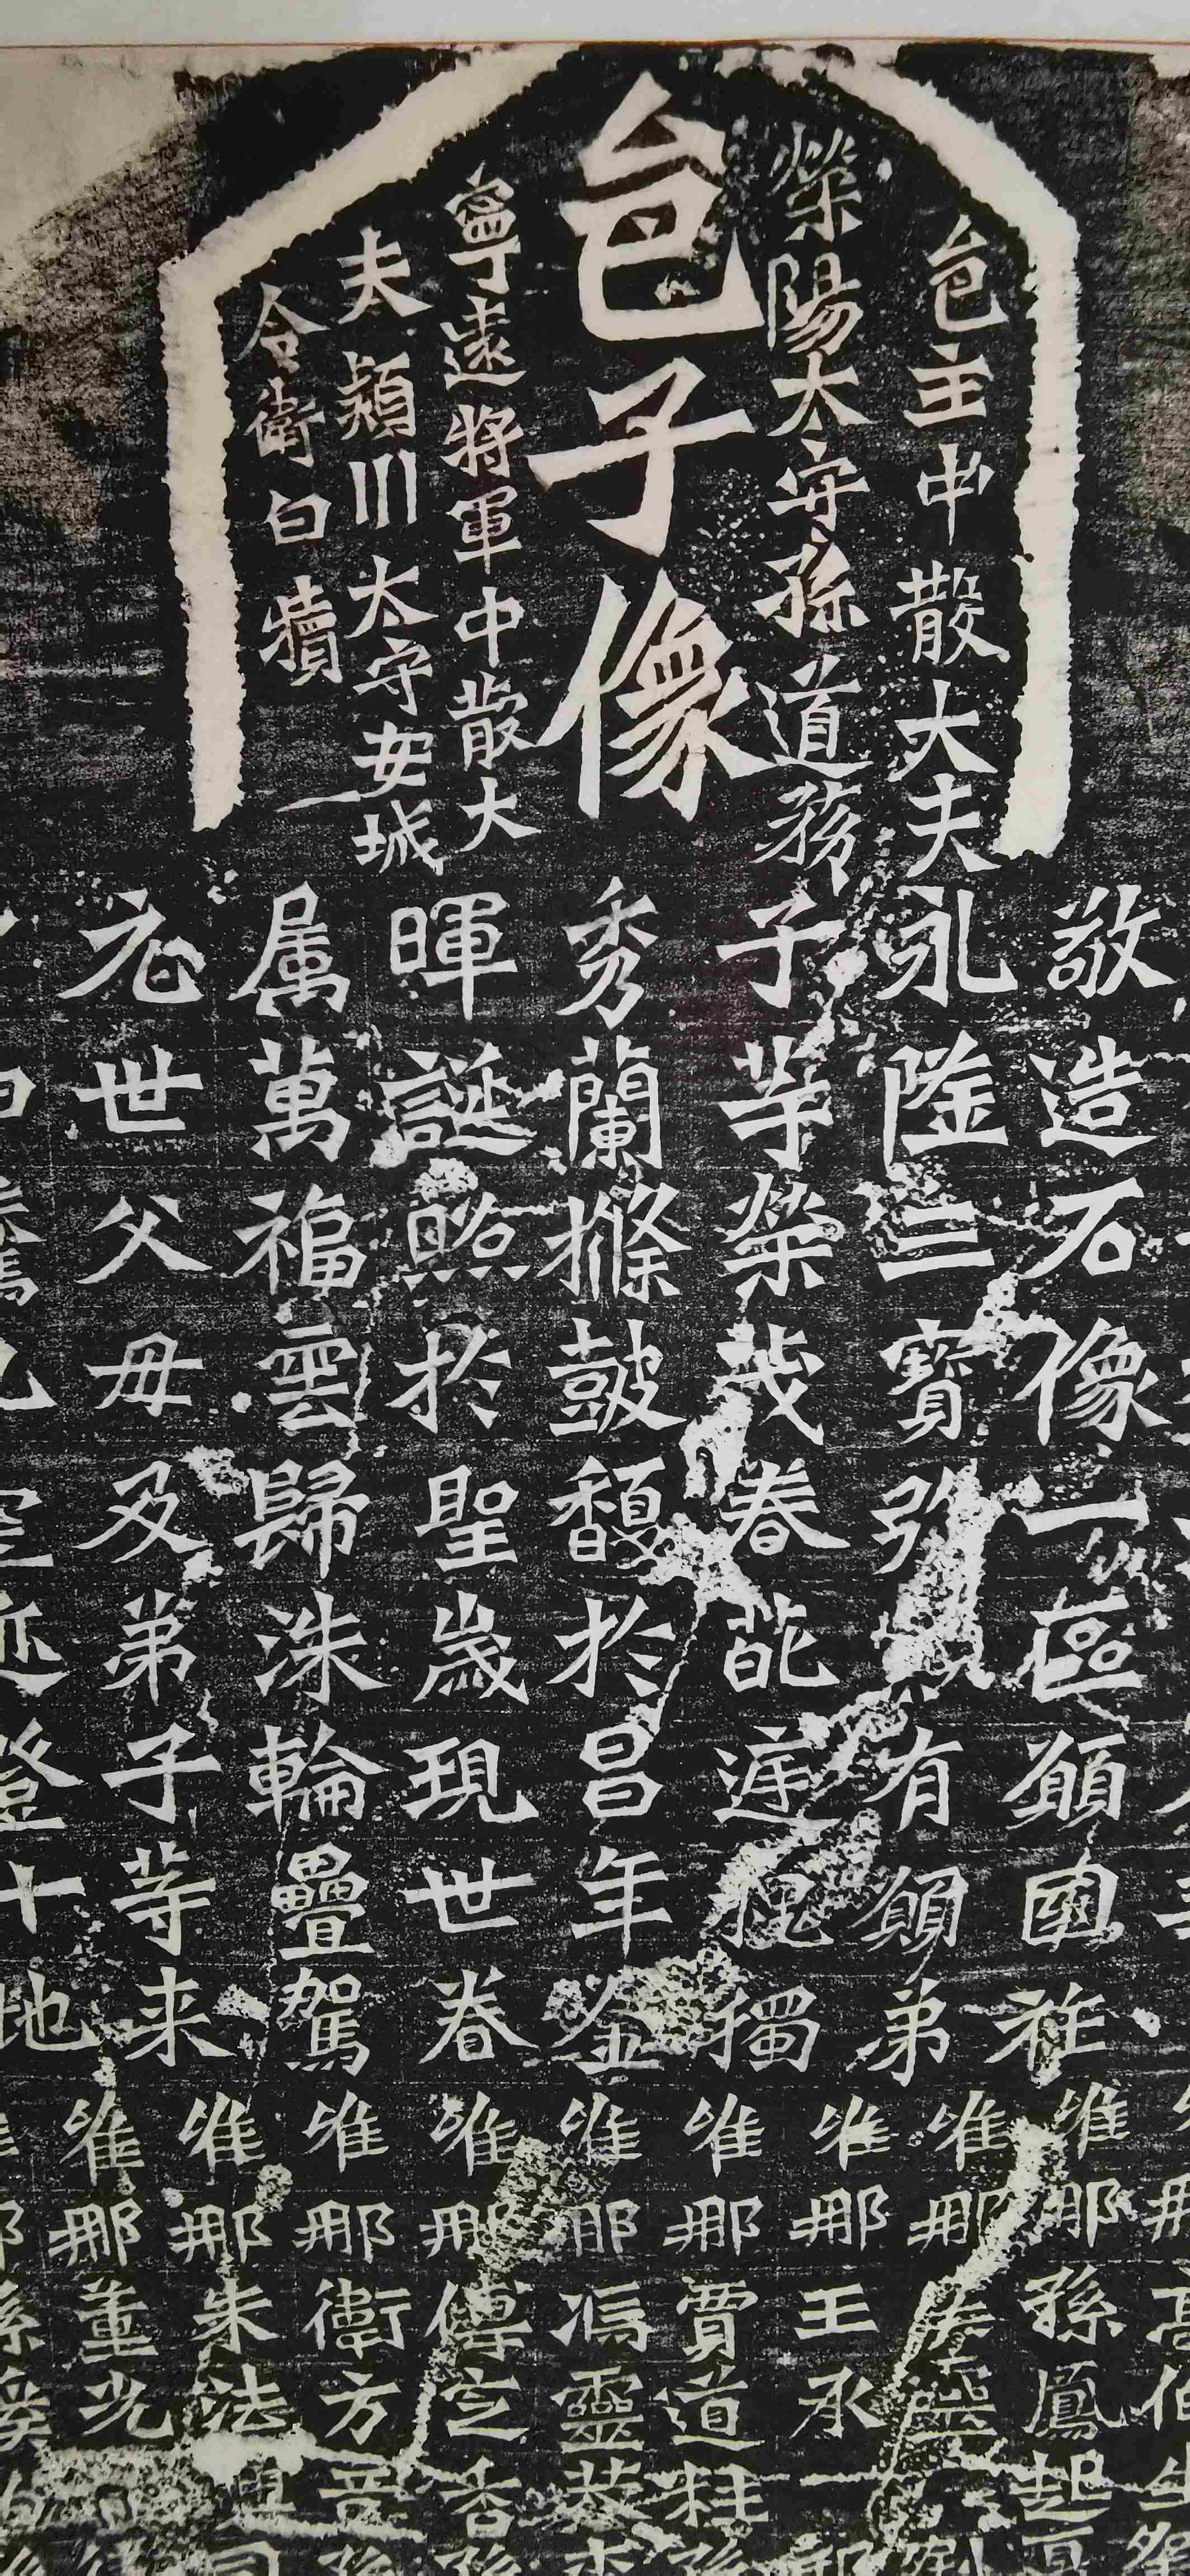 邑子像
邑主中散大夫
滎陽太守孫道務
寧遠將軍中散大
夫潁川太守安城
令衛白犢
敬造石像一區願國祚
永隆三寶彌顯有願弟
子等榮茂春葩庭槐獨
秀蘭條鼓馥於昌年金
暉誕照於聖歲現世眷
属萬福雲歸洙輪疊駕
元世父母及弟子等来
維那孫鳳起
維那
維那王承
維那賈道柱
維那馮靈恭
維那傅定香
維那衛方意
維那朱法
維那董光